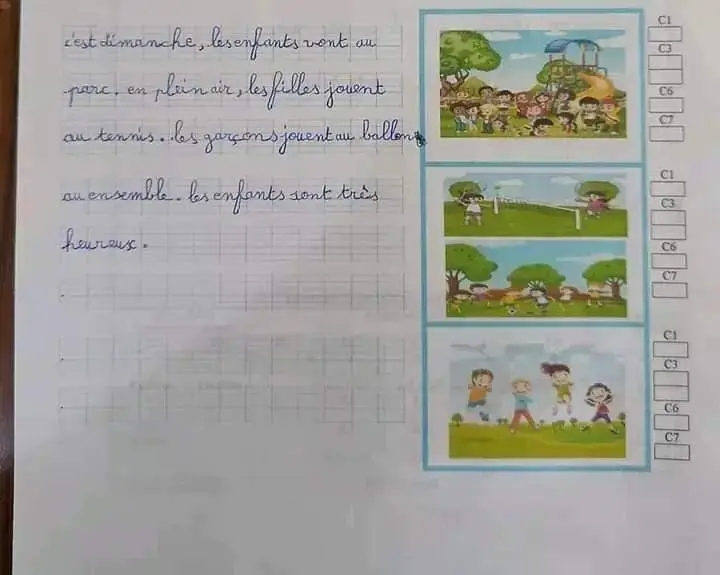 c'est dimanche, les enfants vont au
parc. en plein air, les filles jouent
au tennis. les garçons jouent au ballon
au ensemble. les enfants sont très
heureux.
C1
C3
C6
C7
C1
C3
C6
C7
C1
C3
C6
C7